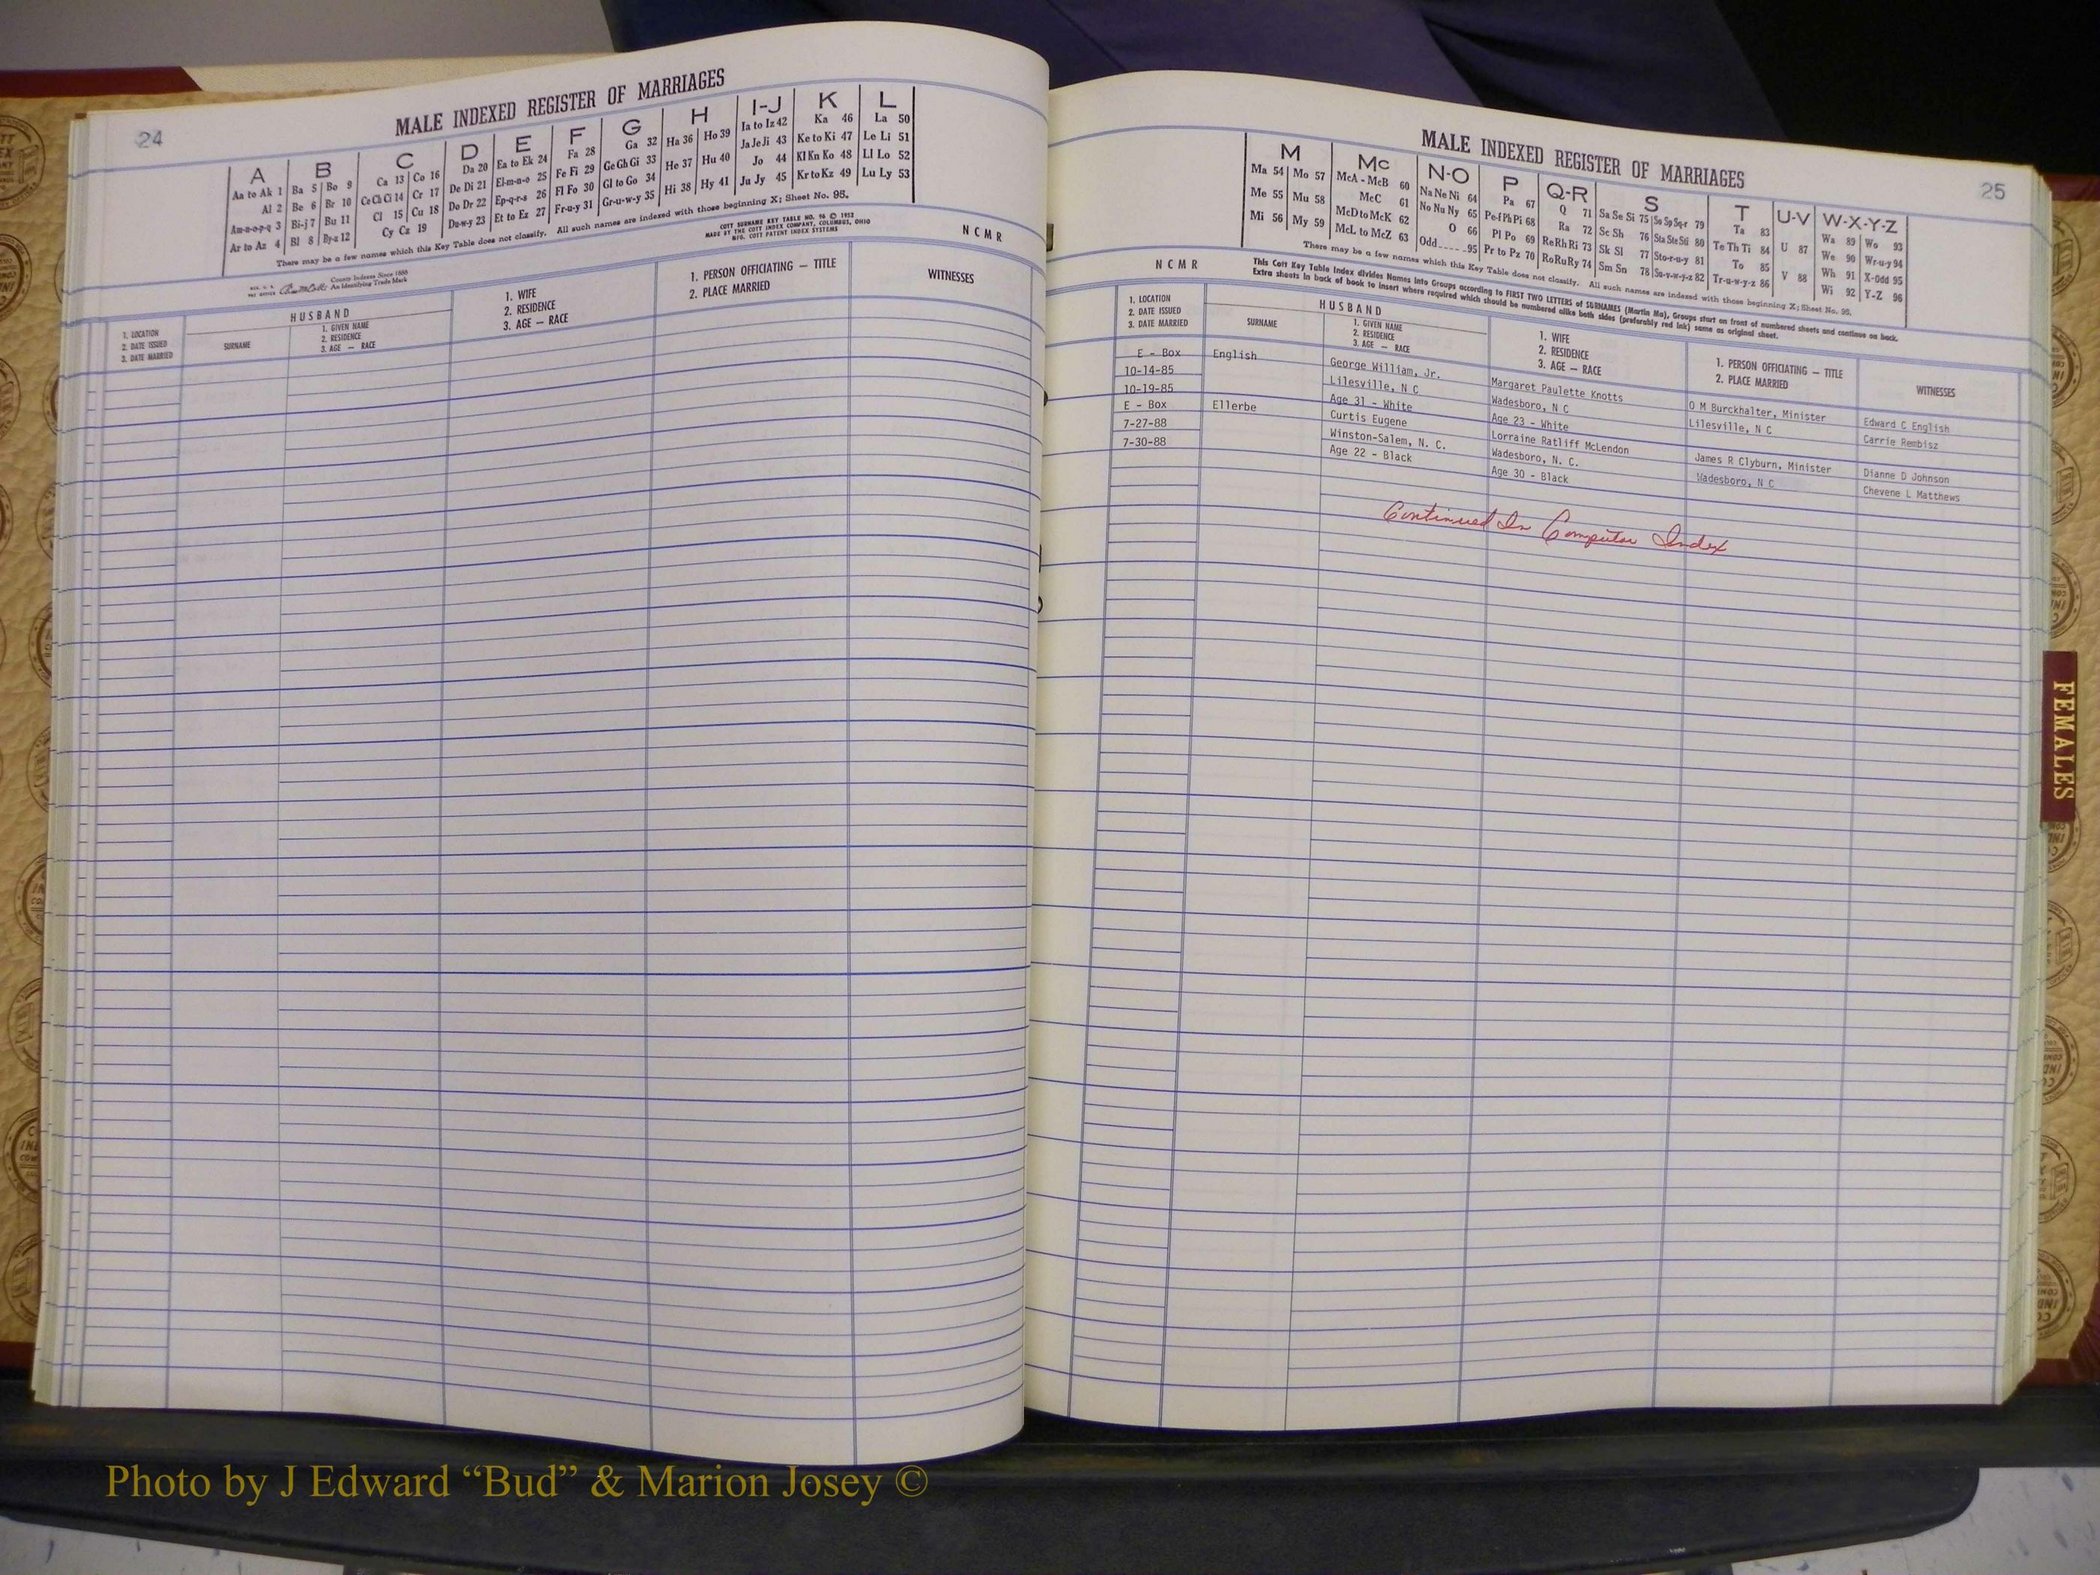 24
MALE INDEXED REGISTER OF MARRIAGES
A B C D E F G H I-J K L
Aa to Ak 1 Ba 5 Bo 9 Ca 13 Co 16 Da 20 Ea to Ek 24 Fa 28 Ga 32 Ha 36 Ho 39 Ia to Iz 42 Ka 46 La 50
Al 2 Be 6 Br 10 Ce Ch Ci 14 Cr 17 De Di 21 El-m-n-o 25 Fe Fi 29 Ge Gh Gi 33 He 37 Hu 40 Ja Je Ji 43 Ke to Ki 47 Le Li 51
Am-n-o-p-q 3 Bi-j 7 Bu 11 Cl 15 Cu 18 Do Dr 22 Ep-q-r-s 26 Fl Fo 30 Gl to Go 34 Hi 38 Hy 41 Jo 44 Kl Kn Ko 48 Ll Lo 52
Ar to Az 4 Bl 8 By-z 12 Cy Cz 19 Du-w-y 23 Et to Ez 27 Fr-u-y 31 Gr-u-w-y 35 Ju Jy 45 Kr to Kz 49 Lu Ly 53
There may be a few names which this Key Table does not classify. All such names are indexed with those beginning X; Sheet No. 95.
COTT SURNAME KEY TABLE NO. 96 © 1952
MADE BY THE COTT INDEX COMPANY, COLUMBUS, OHIO
MFG. COTT PATENT INDEX SYSTEMS
N C M R
County Indexes Since 1888
An Identifying Trade Mark
1. LOCATION
2. DATE ISSUED
3. DATE MARRIED
HUSBAND
SURNAME
1. GIVEN NAME
2. RESIDENCE
3. AGE — RACE
1. WIFE
2. RESIDENCE
3. AGE — RACE
1. PERSON OFFICIATING — TITLE
2. PLACE MARRIED
WITNESSES
MALE INDEXED REGISTER OF MARRIAGES
25
M Mc N-O P Q-R S T U-V W-X-Y-Z
Ma 54 Mo 57 McA - McB 60 Na Ne Ni 64 Pa 67 Q 71 Sa Se Si 75 So Sp Sq-r 79 Ta 83 U 87 Wa 89 Wo 93
Me 55 Mu 58 McC 61 No Nu Ny 65 Pe-f Ph Pi 68 Ra 72 Sc Sh 76 Sta Ste Sti 80 Te Th Ti 84 V 88 We 90 Wr-u-y 94
Mi 56 My 59 McD to McK 62 O 66 Pl Po 69 Re Rh Ri 73 Sk Sl 77 Sto-r-u-y 81 To 85 Wh 91 X-Odd 95
McL to McZ 63 Odd 95 Pr to Pz 70 Ro Ru Ry 74 Sm Sn 78 Su-v-w-y-z 82 Tr-u-w-y-z 86 Wi 92 Y-Z 96
There may be a few names which this Key Table does not classify. All such names are indexed with those beginning X; Sheet No. 95.
N C M R
This Cott Key Table Index divides Names into Groups according to FIRST TWO LETTERS of SURNAMES (Martin Ma), Groups start on front of numbered sheets and continue on back.
Extra sheets in back of book to insert where required which should be numbered alike both sides (preferably red ink) same as original sheet.
1. LOCATION
2. DATE ISSUED
3. DATE MARRIED
HUSBAND
SURNAME
1. GIVEN NAME
2. RESIDENCE
3. AGE — RACE
1. WIFE
2. RESIDENCE
3. AGE — RACE
1. PERSON OFFICIATING — TITLE
2. PLACE MARRIED
WITNESSES
E - Box English George William, Jr. Margaret Paulette Knotts O M Burckhalter, Minister Edward C English
10-14-85 Lilesville, N C Wadesboro, N C Lilesville, N C Carrie Rembisz
10-19-85 Age 31 - White Age 23 - White
E - Box Ellerbe Curtis Eugene Lorraine Ratliff McLendon James R Clyburn, Minister Dianne D Johnson
7-27-88 Winston-Salem, N. C. Wadesboro, N. C. Wadesboro, N C Chevene L Matthews
7-30-88 Age 22 - Black Age 30 - Black
Continued In Computer Index
FEMALES
Photo by J Edward “Bud” & Marion Josey ©